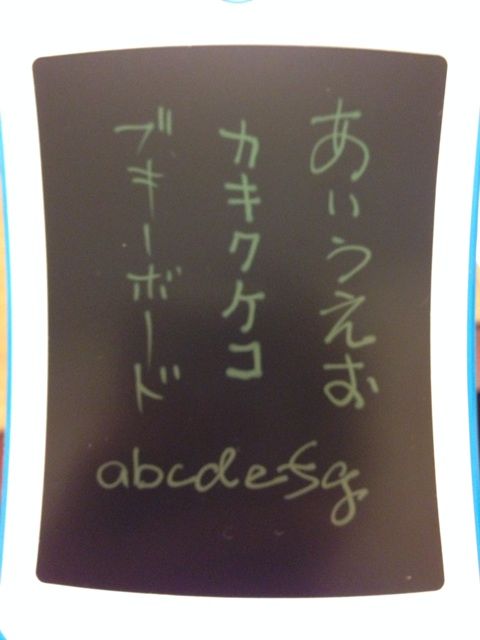 あいうえお
カキクケコ
ブキーボード
abcdefg